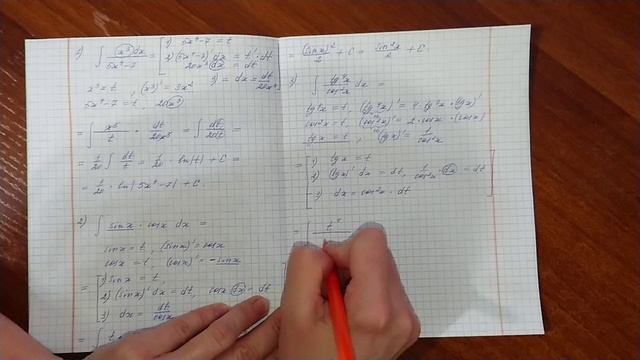 1) ∫ x³dx / 5x⁴-7 = [ 1) 5x⁴-7 = t
2) (5x⁴-7)'dx = t'·dt
20x³ dx = dt
3) = dx = dt/20x³
x³ = t , (x³)' = 3x²
5x⁴-7 = t , 20x³
= ∫ x³/t · dt/20x³ = ∫ dt/20t =
= 1/20 ∫ dt/t = 1/20 · ln|t| + C =
= 1/20 · ln|5x⁴-7| + C.
2) ∫ sinx · cosx dx =
sinx = t , (sinx)' = cosx
cosx = t , (cosx)' = -sinx
= [ 1) sinx = t ,
2) (sinx)'dx = dt, cosx dx = dt
3) dx = dt/cosx
= ∫ t
= (sinx)²/2 + C = sin²x/2 + C
3) ∫ tg⁴x/cos²x dx =
tg⁴x = t, (tg⁴x)' = 4·tg³x·(tgx)'
cos²x = t, (cos²x)' = 2·cosx·(cosx)'
tgx = t , (tgx)' = 1/cos²x
= [ 1) tgx = t
2) (tgx)'dx = dt, 1/cos²x · dx = dt
3) dx = cos²x · dt ]
= ∫ t⁴